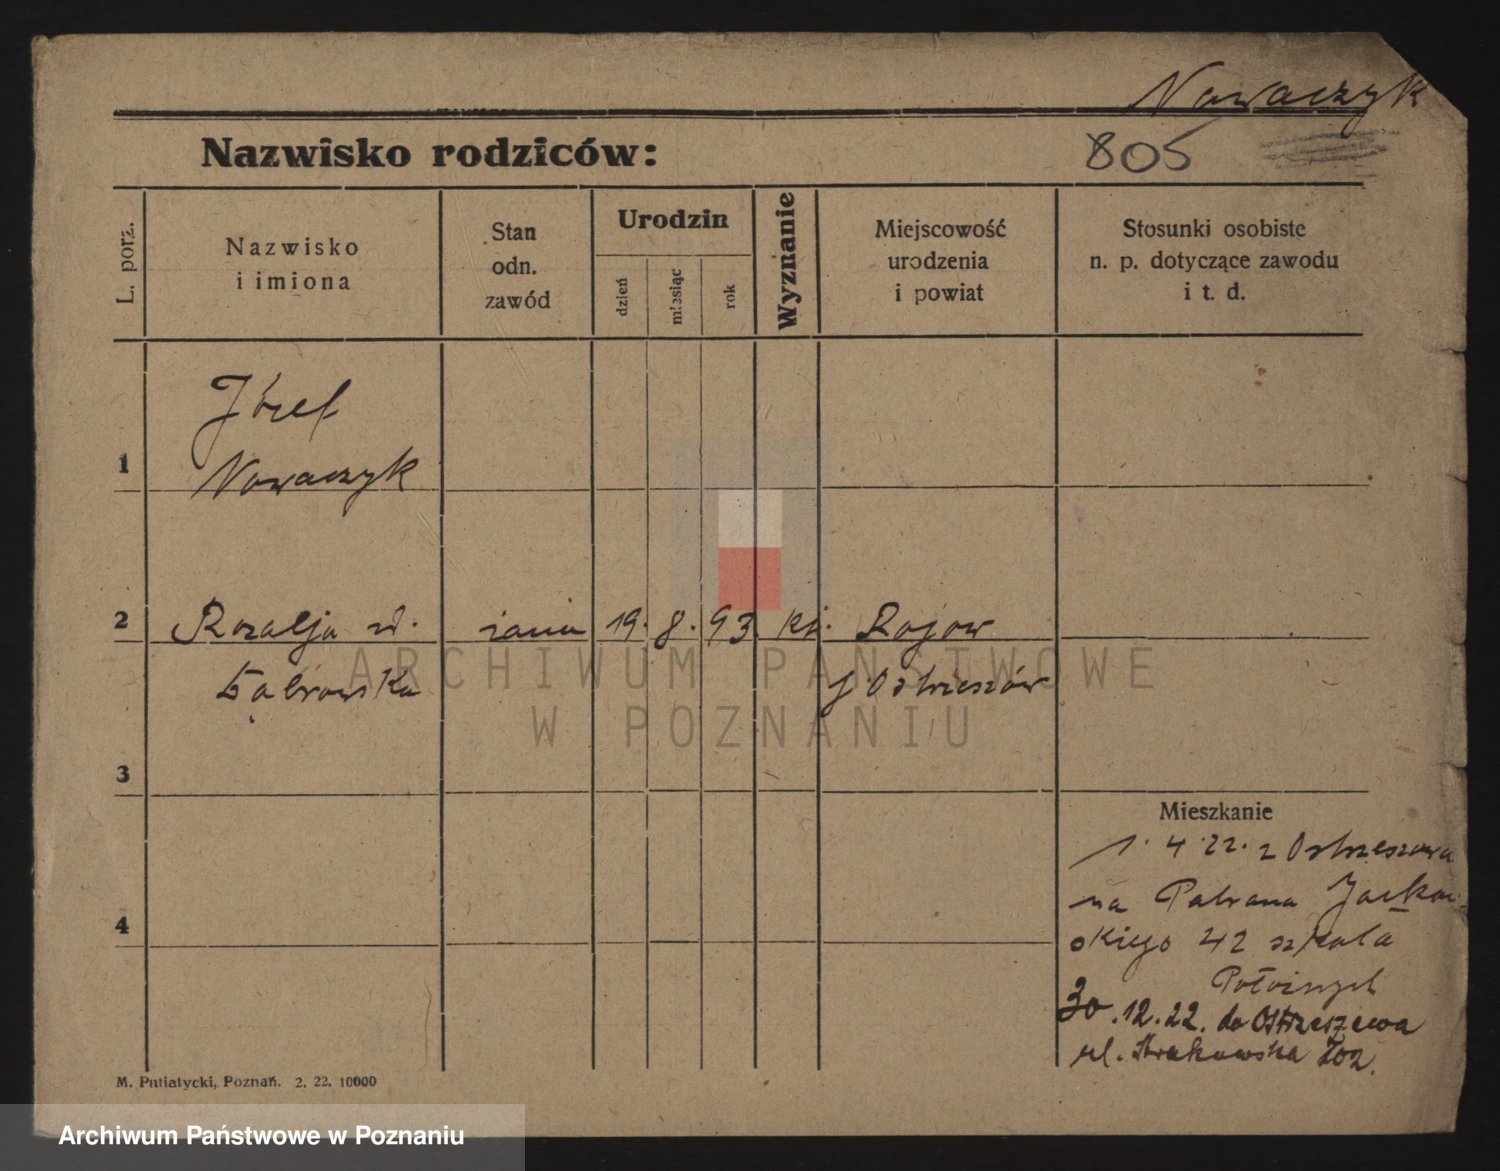 Nowaczyk
Nazwisko rodziców:
805
L. porz.
Nazwisko
i imiona
Stan
odn.
zawód
Urodzin
dzień
miesiąc
rok
Wyznanie
Miejscowość
urodzenia
i powiat
Stosunki osobiste
n. p. dotyczące zawodu
i t. d.
1
Józef
Nowaczyk
2
Rozalja
19. 8. 93. kt. Rojów
Ostrzeszów
ARCHIWUM PAŃSTWOWE
W POZNANIU
3
Mieszkanie
1. 4. 22. z Ostrzeszowa
na Patrona Jackow
skiego 42 szkoła
Położnych
4
30.12.22. do Ostrzeszowa
ul. Krakowska
M. Putiatycki, Poznań. 2. 22. 10000
Archiwum Państwowe w Poznaniu